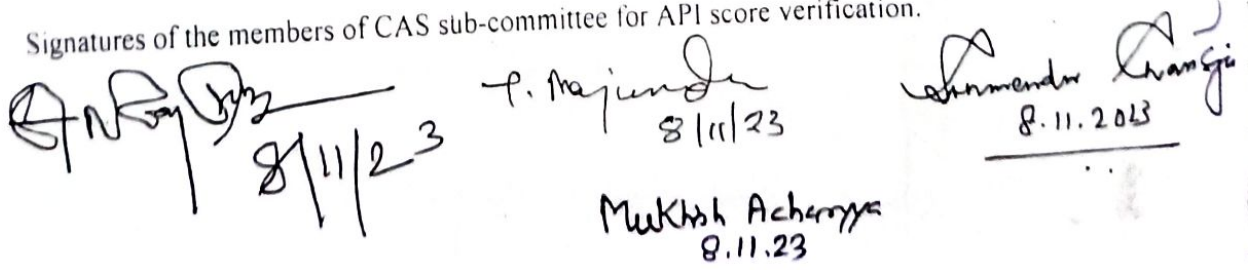 Signatures of the members of CAS sub-committee for API score verification.
8/11/23
P. Majumdar
8/11/23
8.11.2023
Mukhsh Acharyya
8.11.23